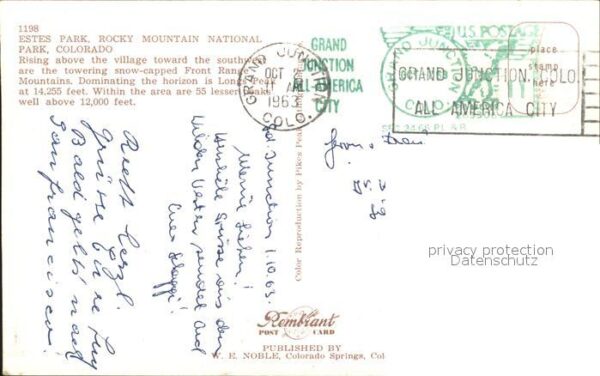 1198
ESTES PARK, ROCKY MOUNTAIN NATIONAL
PARK, COLORADO
Rising above the village toward the southwest
are the towering snow-capped Front Range
Mountains. Dominating the horizon is Long's Peak
at 14,255 feet. Within the area are 55 lesser peaks
well above 12,000 feet.
GRAND JUNCTION
OCT
11 AM
1963
COLO.
GRAND
JUNCTION
ALL AMERICA
CITY
U.S. POSTAGE
GRAND JUNCTION
place
stamp
here
GRAND JUNCTION, COLO.
ALL AMERICA CITY
Color Reproduction by Pikes Peak
Gd. Junction 1.10.63.
Meine Lieben!
Grüsse aus dem
Wilden Westen sendet Euch
Euer
Recht herzl.
Grüsse Eure
Bald geht's nach
San Francisco!
privacy protection
Datenschutz
Rembrant
POST CARD
PUBLISHED BY
W. E. NOBLE, Colorado Springs, Col